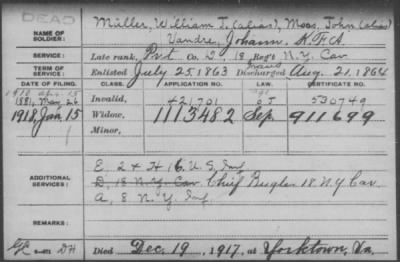 DEAD
NAME OF SOLDIER:
Müller, William T. (alias), Moos, John (alias)
Vandre, Johann. K.F.A.
SERVICE:
Late rank, Pvt Co. D, 18 Reg't N.Y. Cav
TERM OF SERVICE:
Enlisted July 25, 1863 Discharged Aug. 21, 1864
DATE OF FILING. CLASS. APPLICATION NO. LAW. CERTIFICATE NO.
1881, May 26 Invalid, 421701 530749
1918, Jan. 15 Widow, 1113482 Sep. 911699
Minor,
ADDITIONAL SERVICES:
E, 2 & H 16, U.S. Inf
D, 18 N.Y. Cav Chief Bugler 18 N.Y. Cav.
A, 8 N.Y. Inf.
REMARKS:
Died Dec. 19, 1917, at Yorktown, Va.